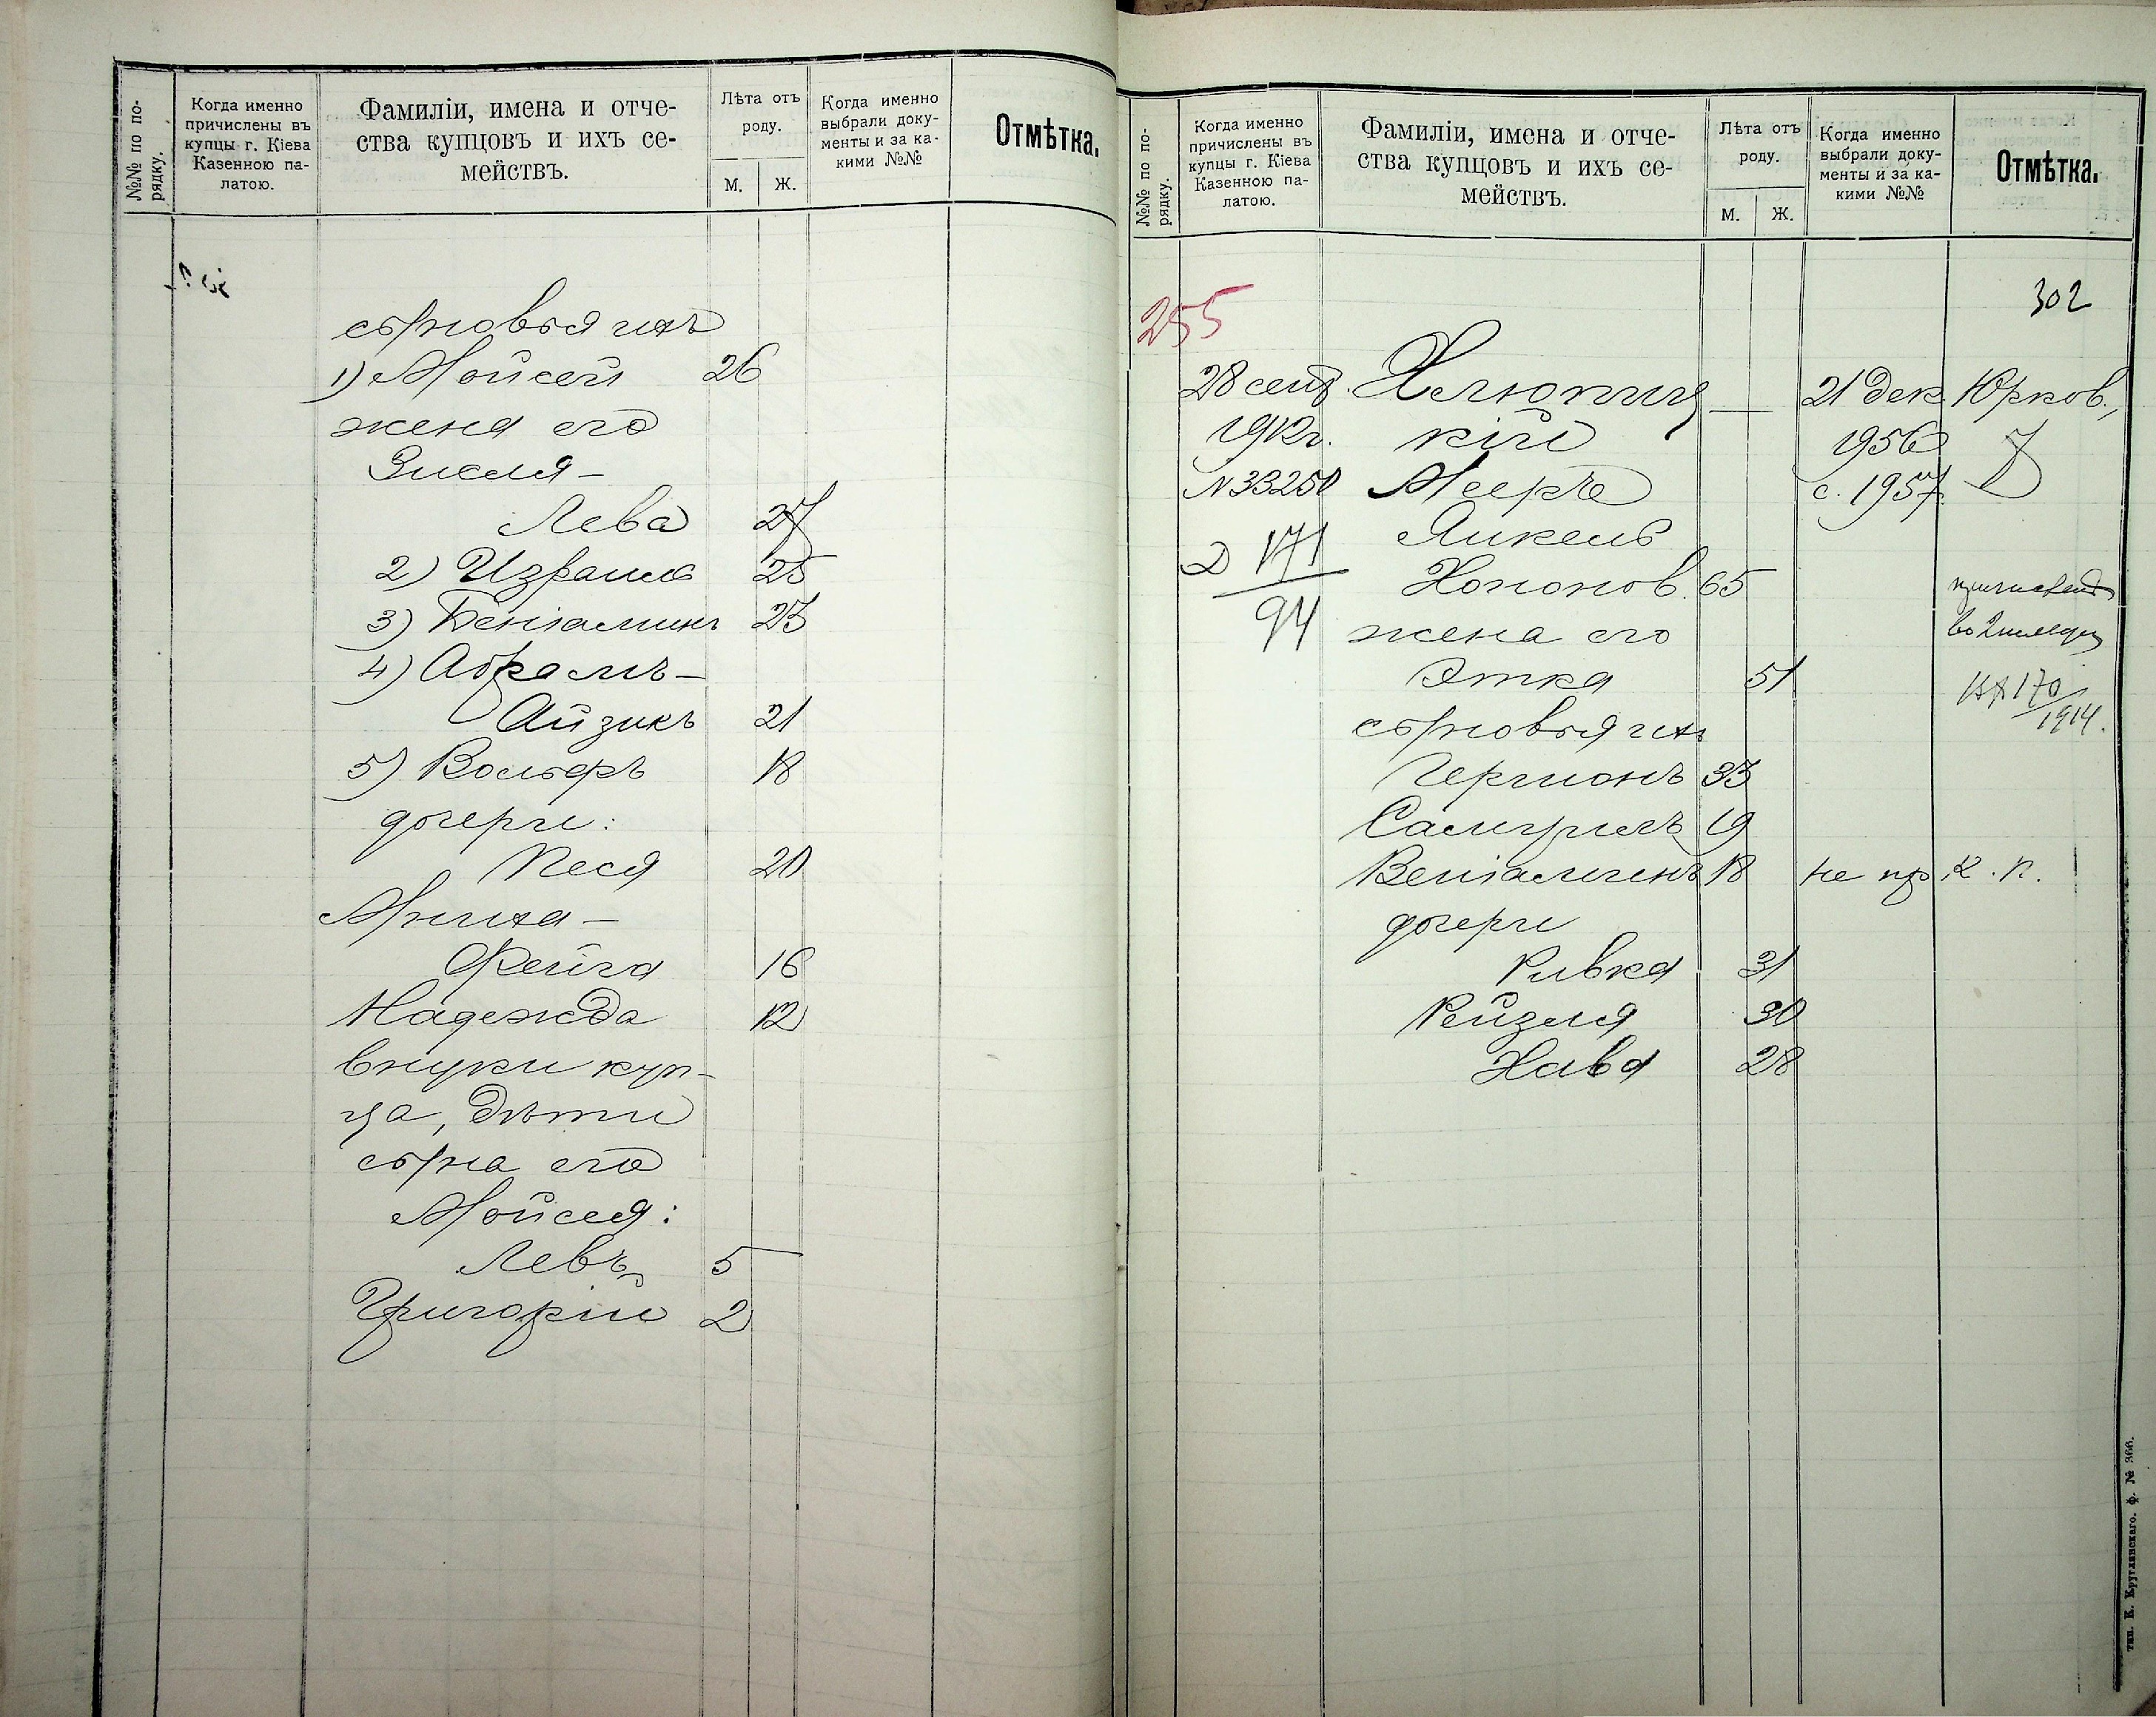 №№ по по-
рядку.
Когда именно
причислены въ
купцы г. Кіева
Казенною па-
латою.
Фамиліи, имена и отче-
ства купцовъ и ихъ се-
мействъ.
Лѣта отъ
роду.
М. Ж.
Когда именно
выбрали доку-
менты и за ка-
кими №№
Отмѣтка.
сыновья ихъ
1) Мойсей 26
жена его
Зисля-
Лева 27
2) Израиль 25
3) Беніаминъ 23
4) Абрамъ-
Айзикъ 21
5) Вольфъ 18
дочери:
Песя 20
Мниха-
Фейга 16
Надежда 12
внуки куп-
ца, дѣти
сына его
Мойсея:
Левъ 5
Григорій 2
№№ по по-
рядку.
Когда именно
причислены въ
купцы г. Кіева
Казенною па-
латою.
Фамиліи, имена и отче-
ства купцовъ и ихъ се-
мействъ.
Лѣта отъ
роду.
М. Ж.
Когда именно
выбрали доку-
менты и за ка-
кими №№
Отмѣтка.
302
255
28 сент. Хлюпиц 21 дек. Юрков.,
1912 г. кій 1956
N 33250 Мееръ с. 1957
Янкель
Д 171
94
Хононов. 65
жена его
Этка 51
во 2 гильдіи
170
1914.
сыновья ихъ
Гершонъ 33
Самуилъ 19
Веніаминъ 18 не пр. К. П.
дочери
Ривка 31
Рейзля 30
Хава 28
тип. К. Круглянскаго. ф. № 366.